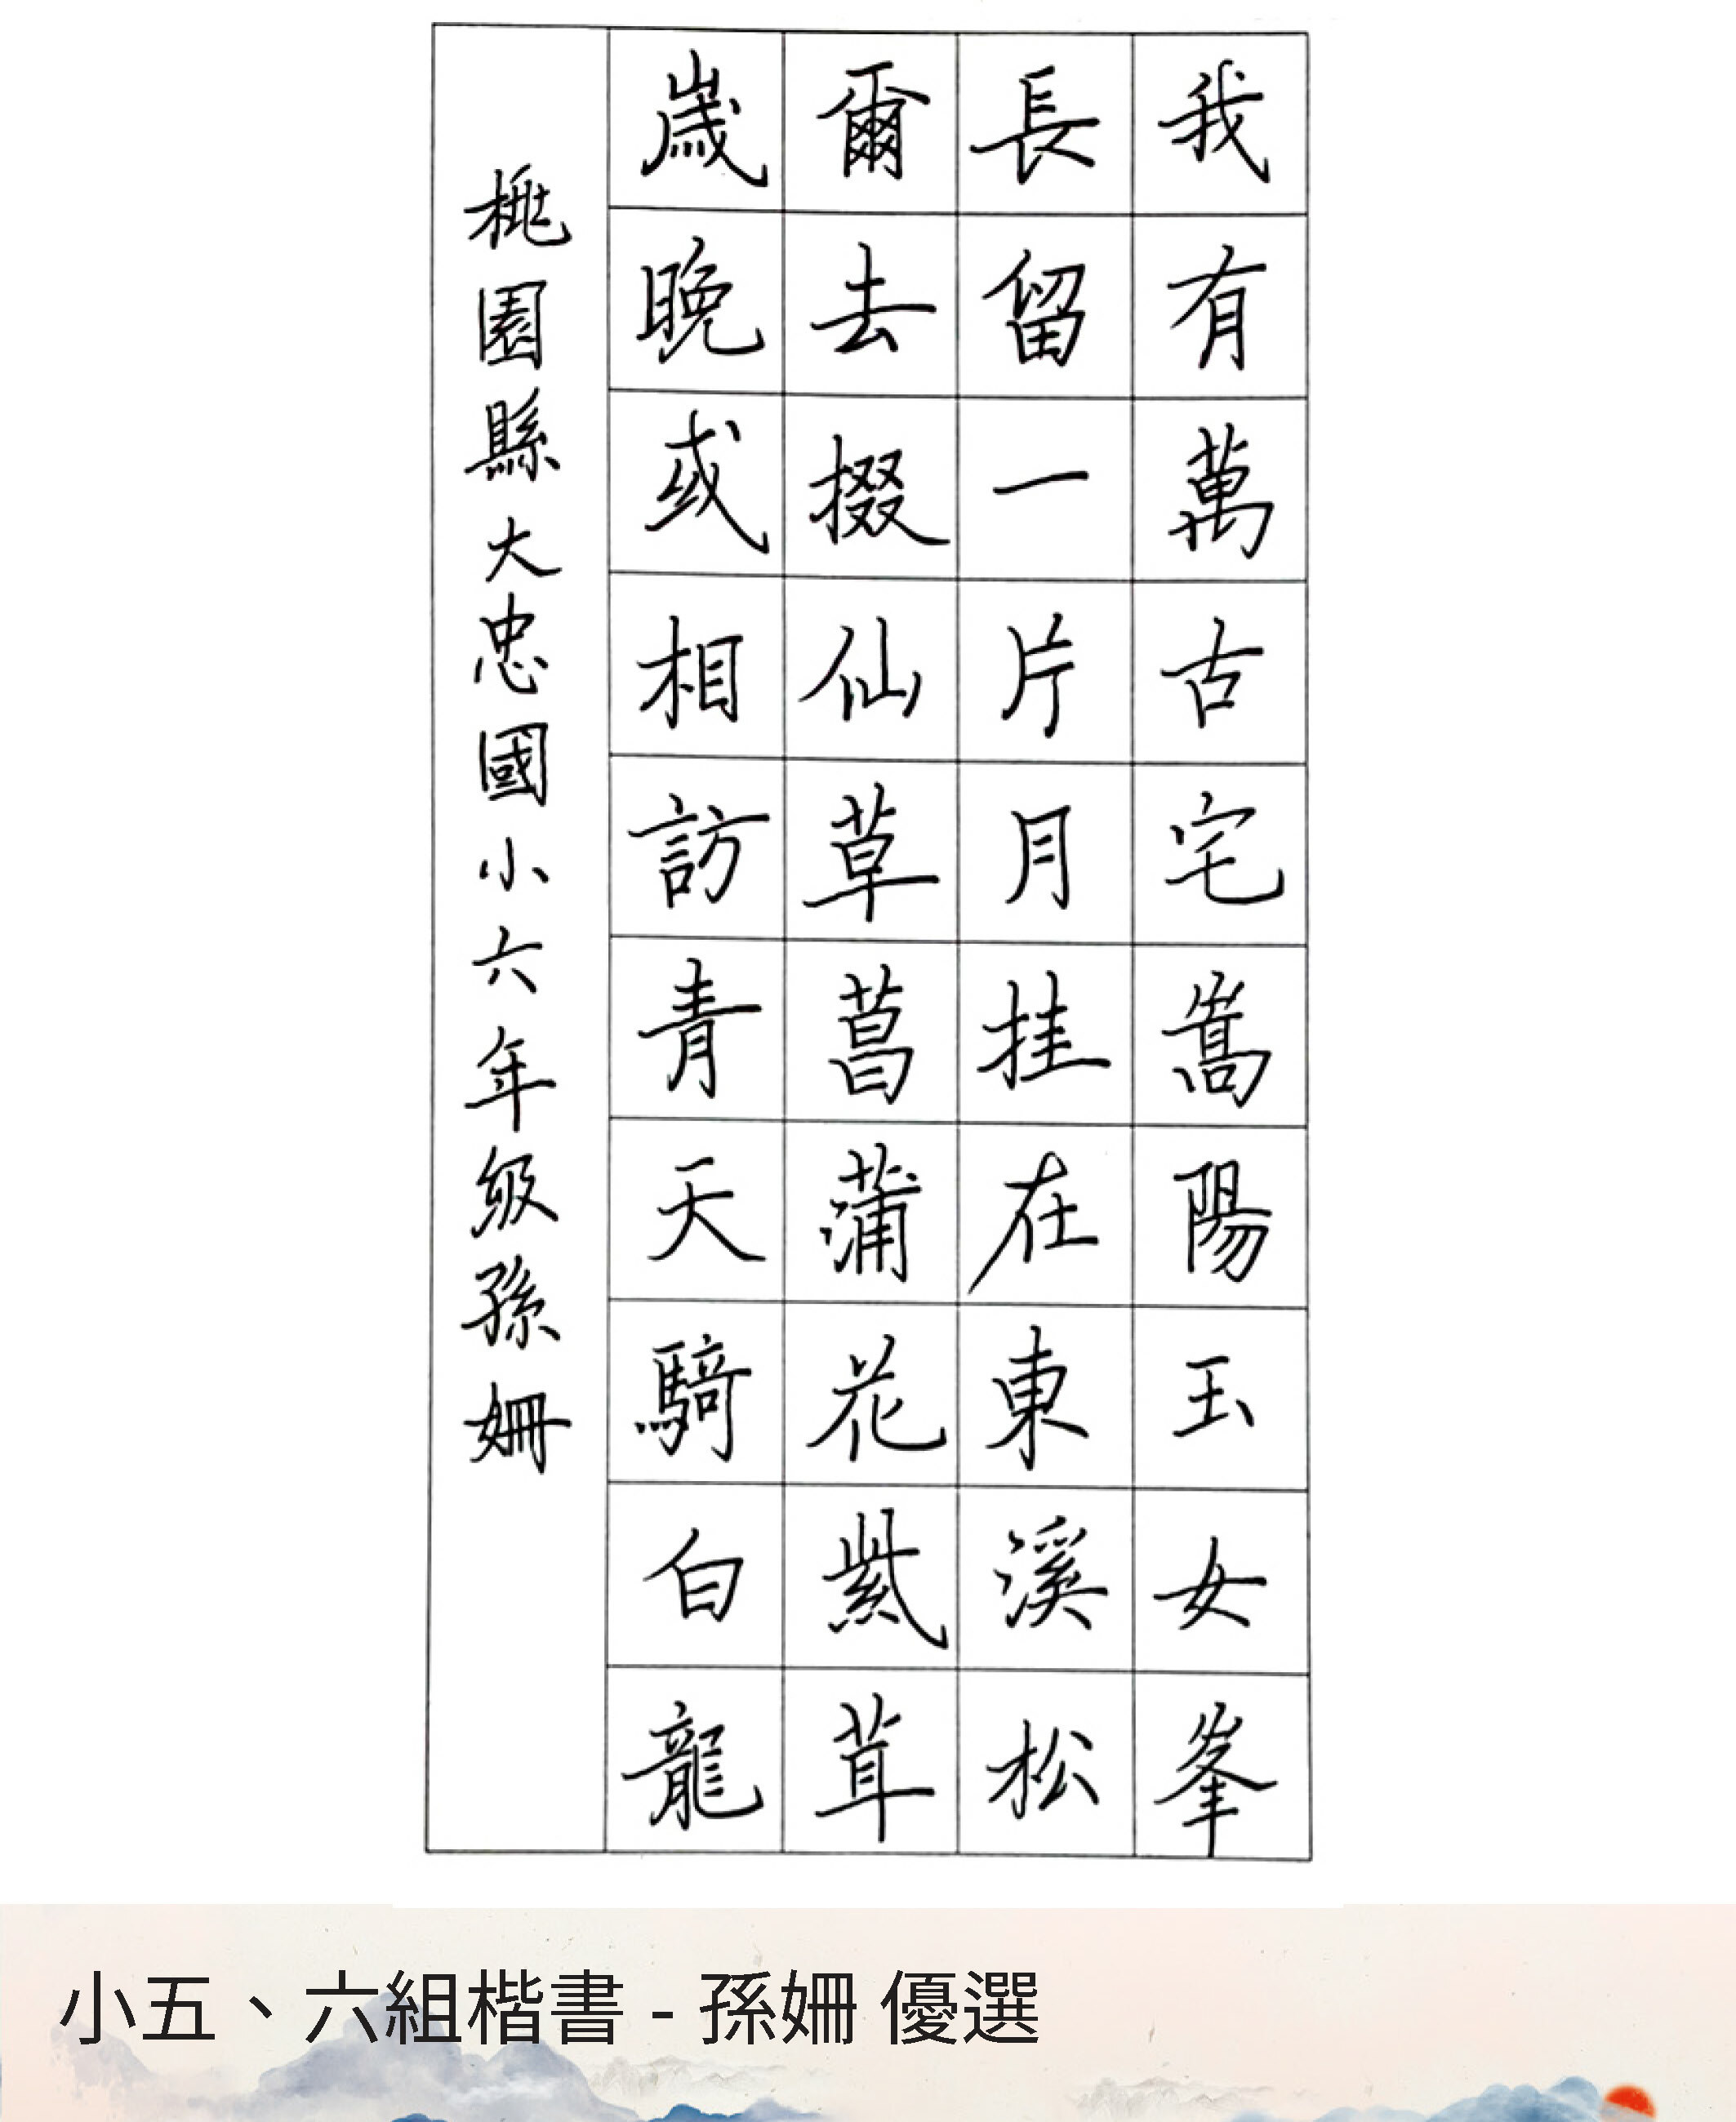 我有萬古宅嵩陽玉女峯
長留一片月挂在東溪松
爾去掇仙草菖蒲花紫茸
歲晚或相訪青天騎白龍
桃園縣大忠國小六年級孫姍
小五、六組楷書 - 孫姍 優選